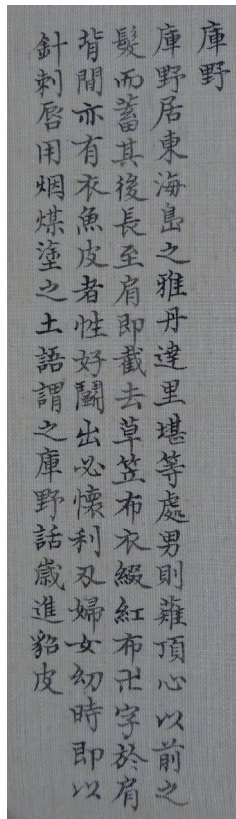 庫野
庫野居東海島之雅丹達里堪等處男則薙頂心以前之
髮而蓄其後長至肩即截去草笠布衣綴紅布卍字於肩
背間亦有衣魚皮者性好鬭出必懷利刃婦女幼時即以
針刺唇用烟煤塗之土語謂之庫野話歲進貂皮